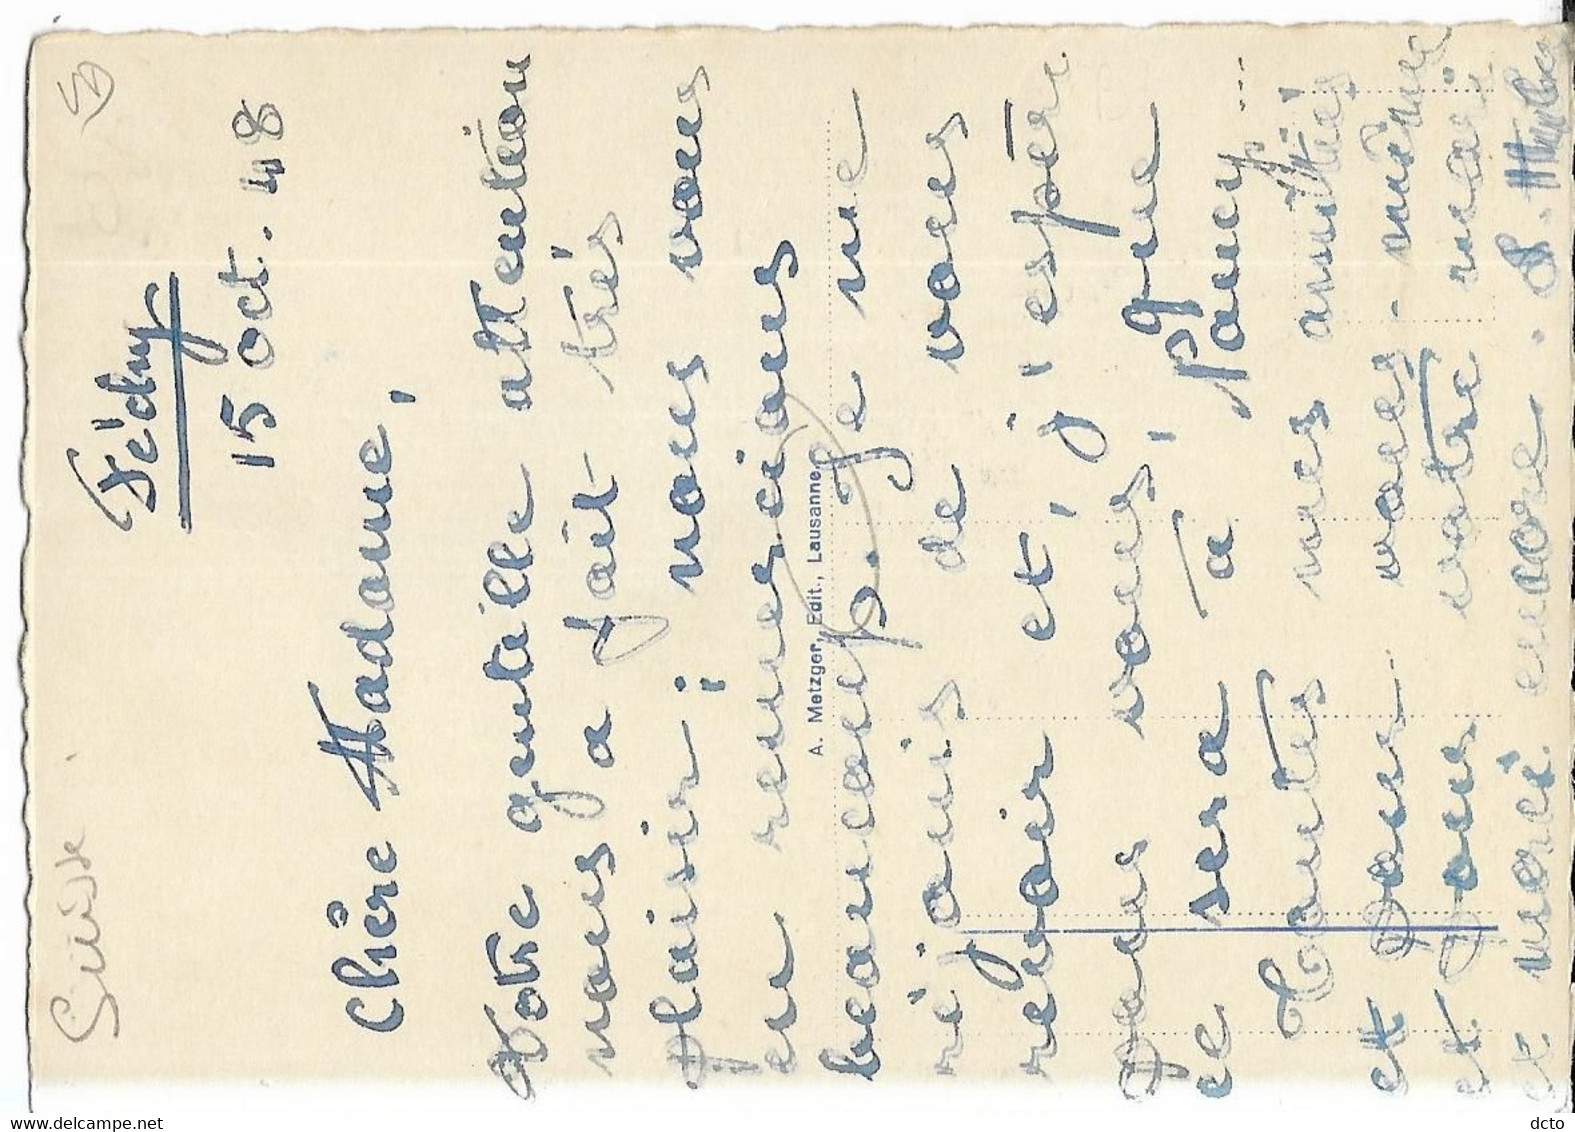 Suisse.
Féchy
15 Oct. 48
Chère Madame,
Votre gentille attention
nous a fait très
plaisir; nous vous
en remercions
beaucoup. Je me
réjouis de vous
revoir et, j'espère
pour vous, que
ce sera à Pauey...
Toutes mes amitiés
et pour vous-même
et pour votre mari
et merci encore. S.
A. Metzger, Edit., Lausanne
www.delcampe.net
dcto